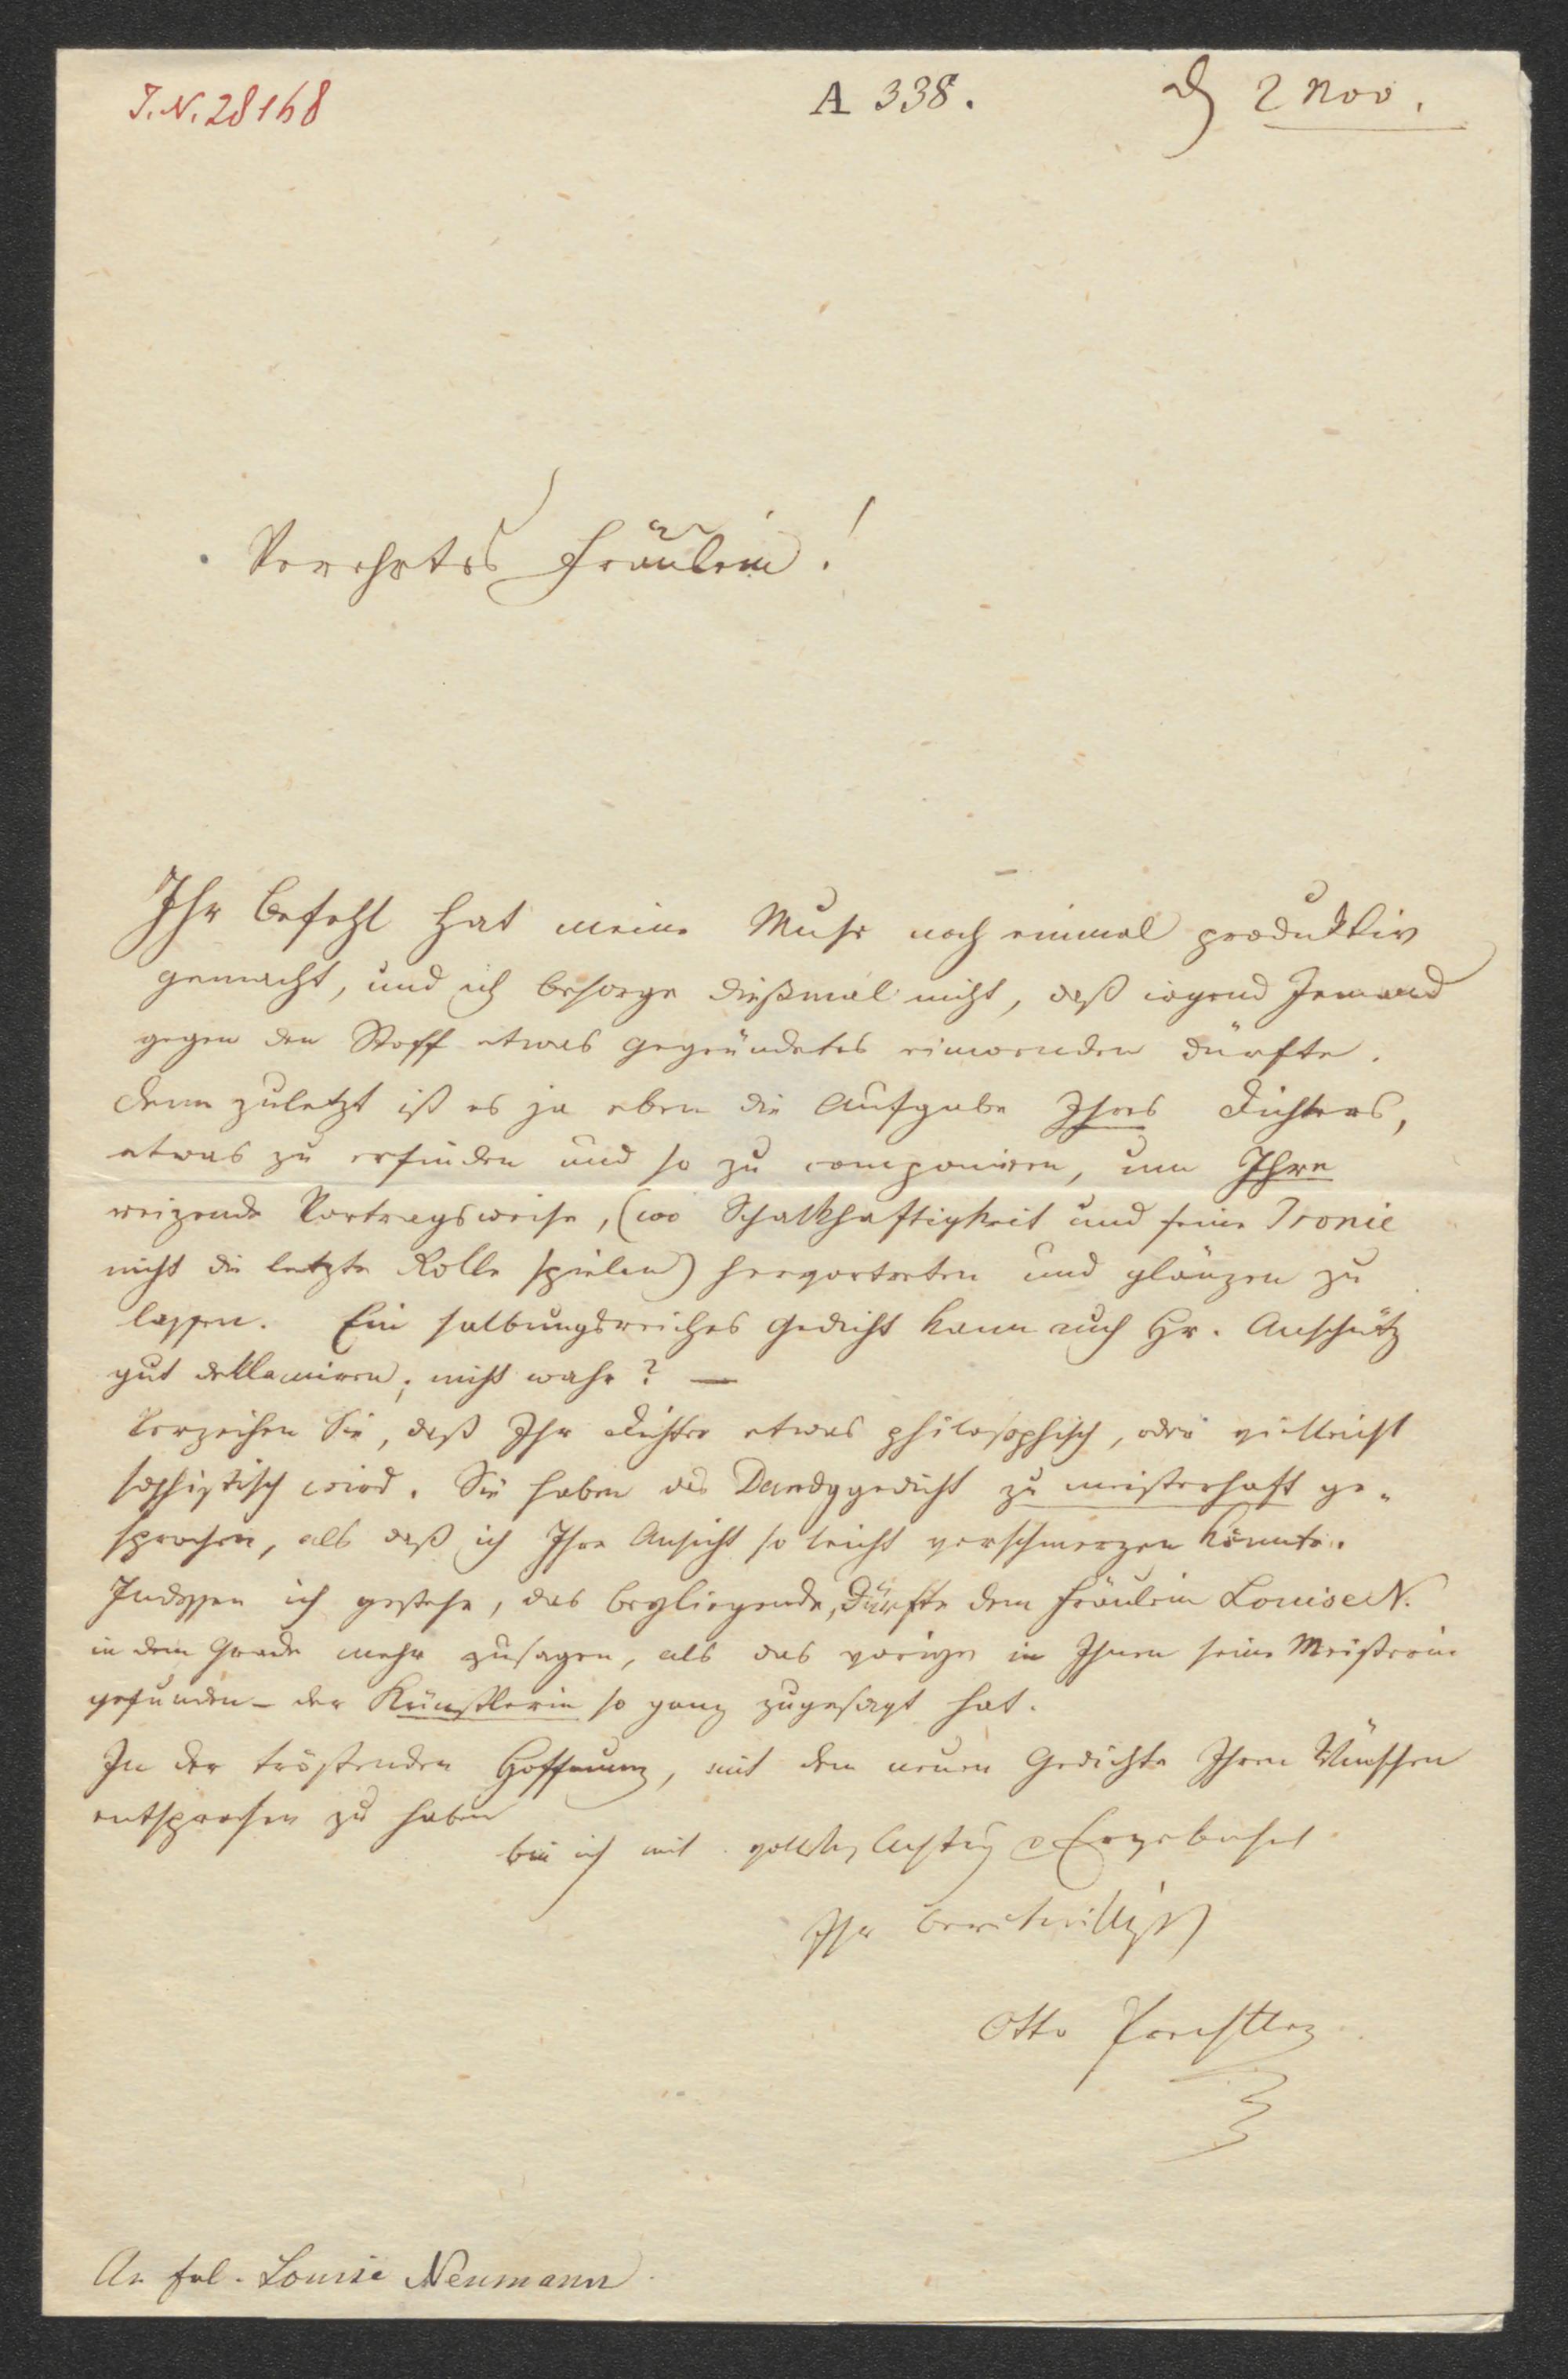 J.N. 28168
A 338.
2 Nov.
Verehrtes Fräulein!
Ihr Befehl hat meine Muse noch einmal produktiv
gemacht, und ich besorge dießmal nicht, daß irgend Jemand
gegen den Stoff etwas gegründetes einwenden dürfte.
Denn zuletzt ist es ja eben die Aufgabe Ihres Dichters,
etwas zu erfinden und so zu componiren, um Ihre
reizende Vortragsweise, (wo Schalkhaftigkeit und feine Ironie
nicht die letzte Rolle spielen) hervortreten und glänzen zu
lassen. Ein salbungsreiches Gedicht kann auch Hr. Anschütz
gut deklamiren; nicht wahr? —
Verzeihen Sie, daß Ihr Dichter etwas philosophisch, oder vielleicht
sophistisch wird. Sie haben das Dandygedicht zu meisterhaft ge-
sprochen, als daß ich Ihre Ansicht so leicht verschmerzen könnte.
Indessen ich gestehe, das beyliegende, dürfte dem Fräulein Louise N.
in dem Grade mehr zusagen, als das vorige in Ihnen seine Meisterin
gefunden – der Künstlerin so ganz zugesagt hat.
In der tröstenden Hoffnung, mit dem neuen Gedichte Ihren Wünschen
entsprochen zu haben
bin ich mit Achtung Ergebenheit
Ihr bereitwilligster
Otto Prechtler
An Frl. Louise Neumann.